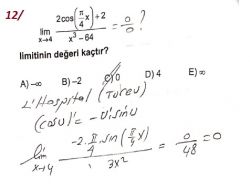 12/
lim x→4 2cos(π/4 x)+2 / x³-64 = 0/0 ?
limitinin değeri kaçtır?
A) -∞ B) -2 C) 0 D) 4 E) ∞
L'Hospital (Türev)
(cosu)' = -u'sinu
lim x→4 -2.π/4.sin(π/4 x) / 3x² = 0/48 = 0